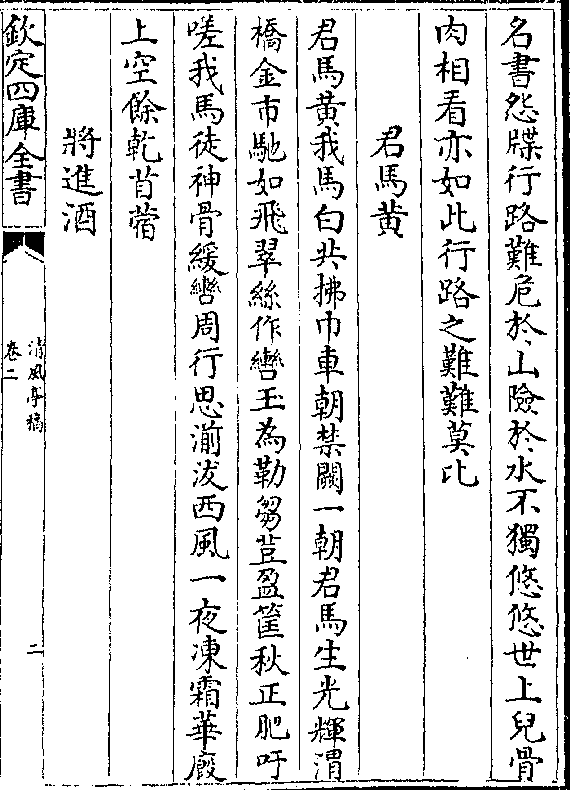 名書怨牒行路難危於山險於水不獨悠悠世上兒骨
肉相看亦如此行路之難難莫比
君馬黄
君馬黄我馬白共拂巾車朝禁闕一朝君馬生光輝渭
橋金市馳如飛翠絲作轡玉為勒芻荳盈筐秋正肥吁
嗟我馬徒神骨緩轡周行思湔沷西風一夜凍霜華廄
上空餘乾苜蓿
將進酒
欽定四庫全書
清風亭稿
卷二
二